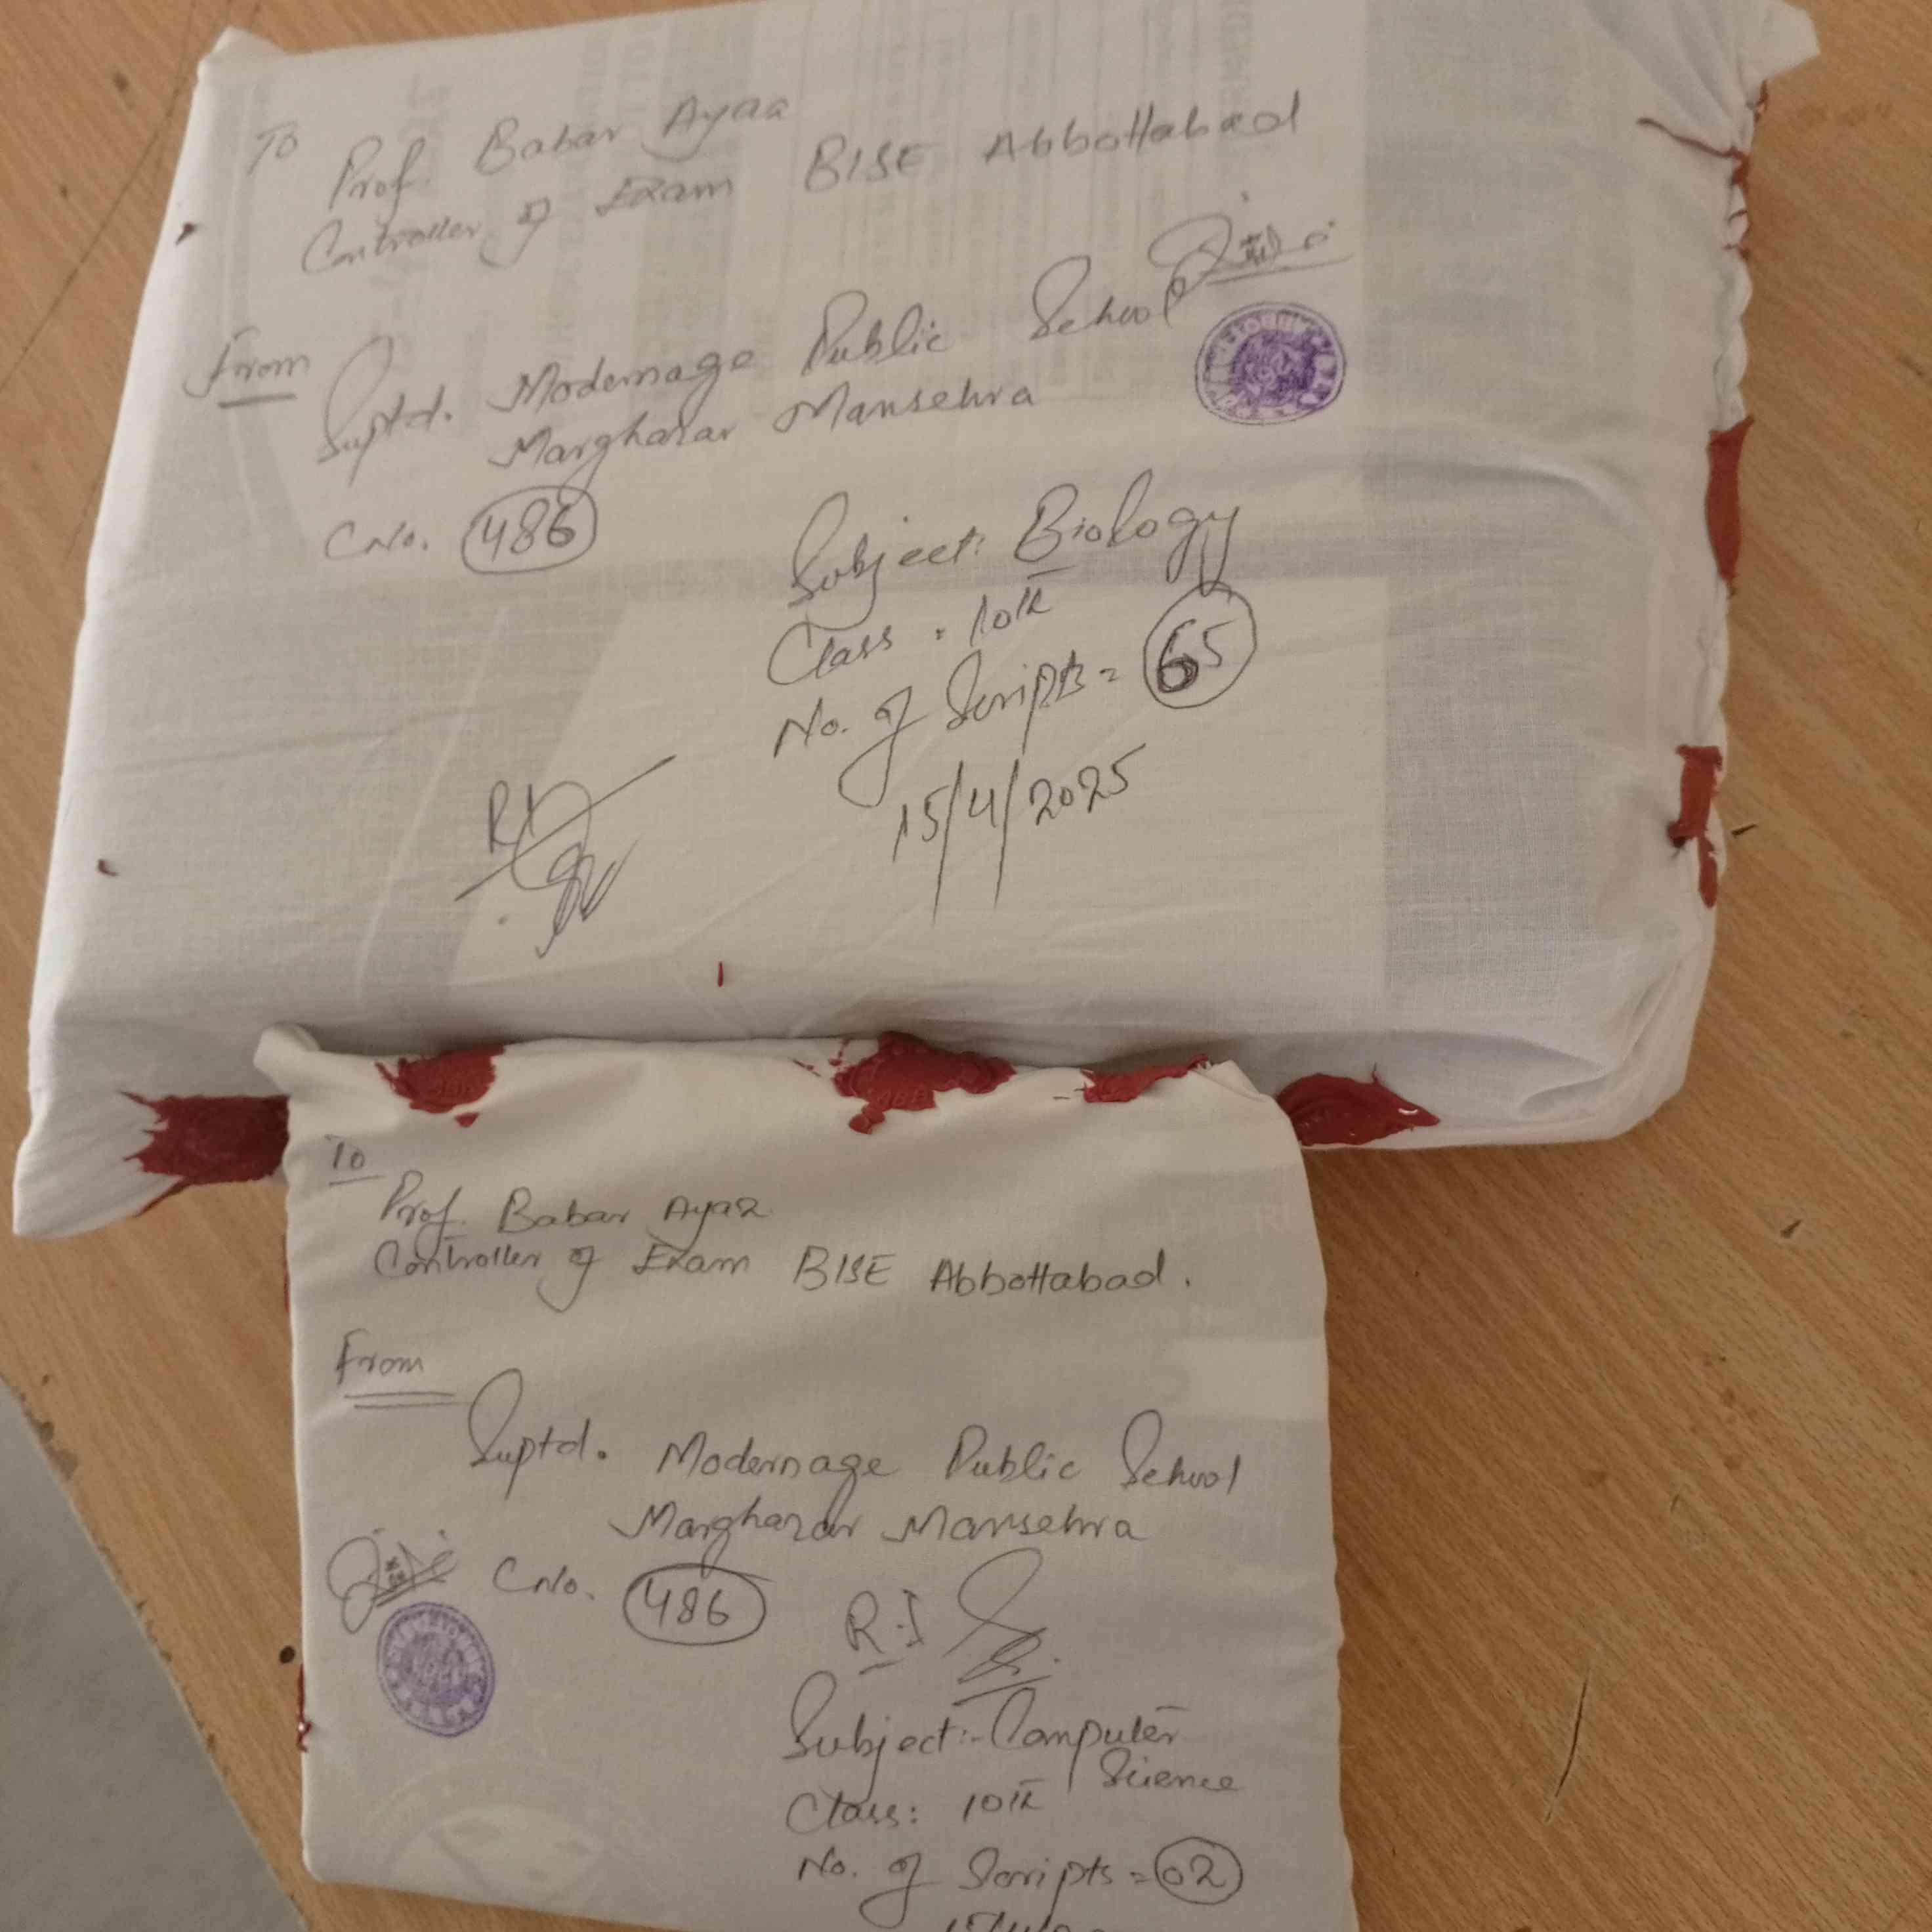 To
Prof. Babar Ayaz
Controller of Exam BISE Abbottabad
From
Suptd. Modernage Public School
Marghazar Mansehra
C No. 486
Subject: Biology
Class: 10th
No. of Scripts = 65
15/4/2025
To
Prof. Babar Ayaz
Controller of Exam BISE Abbottabad.
From
Suptd. Modernage Public School
Marghazar Mansehra
C No. 486
R.I
Subject:- Computer
Science
Class: 10th
No. of Scripts = 02